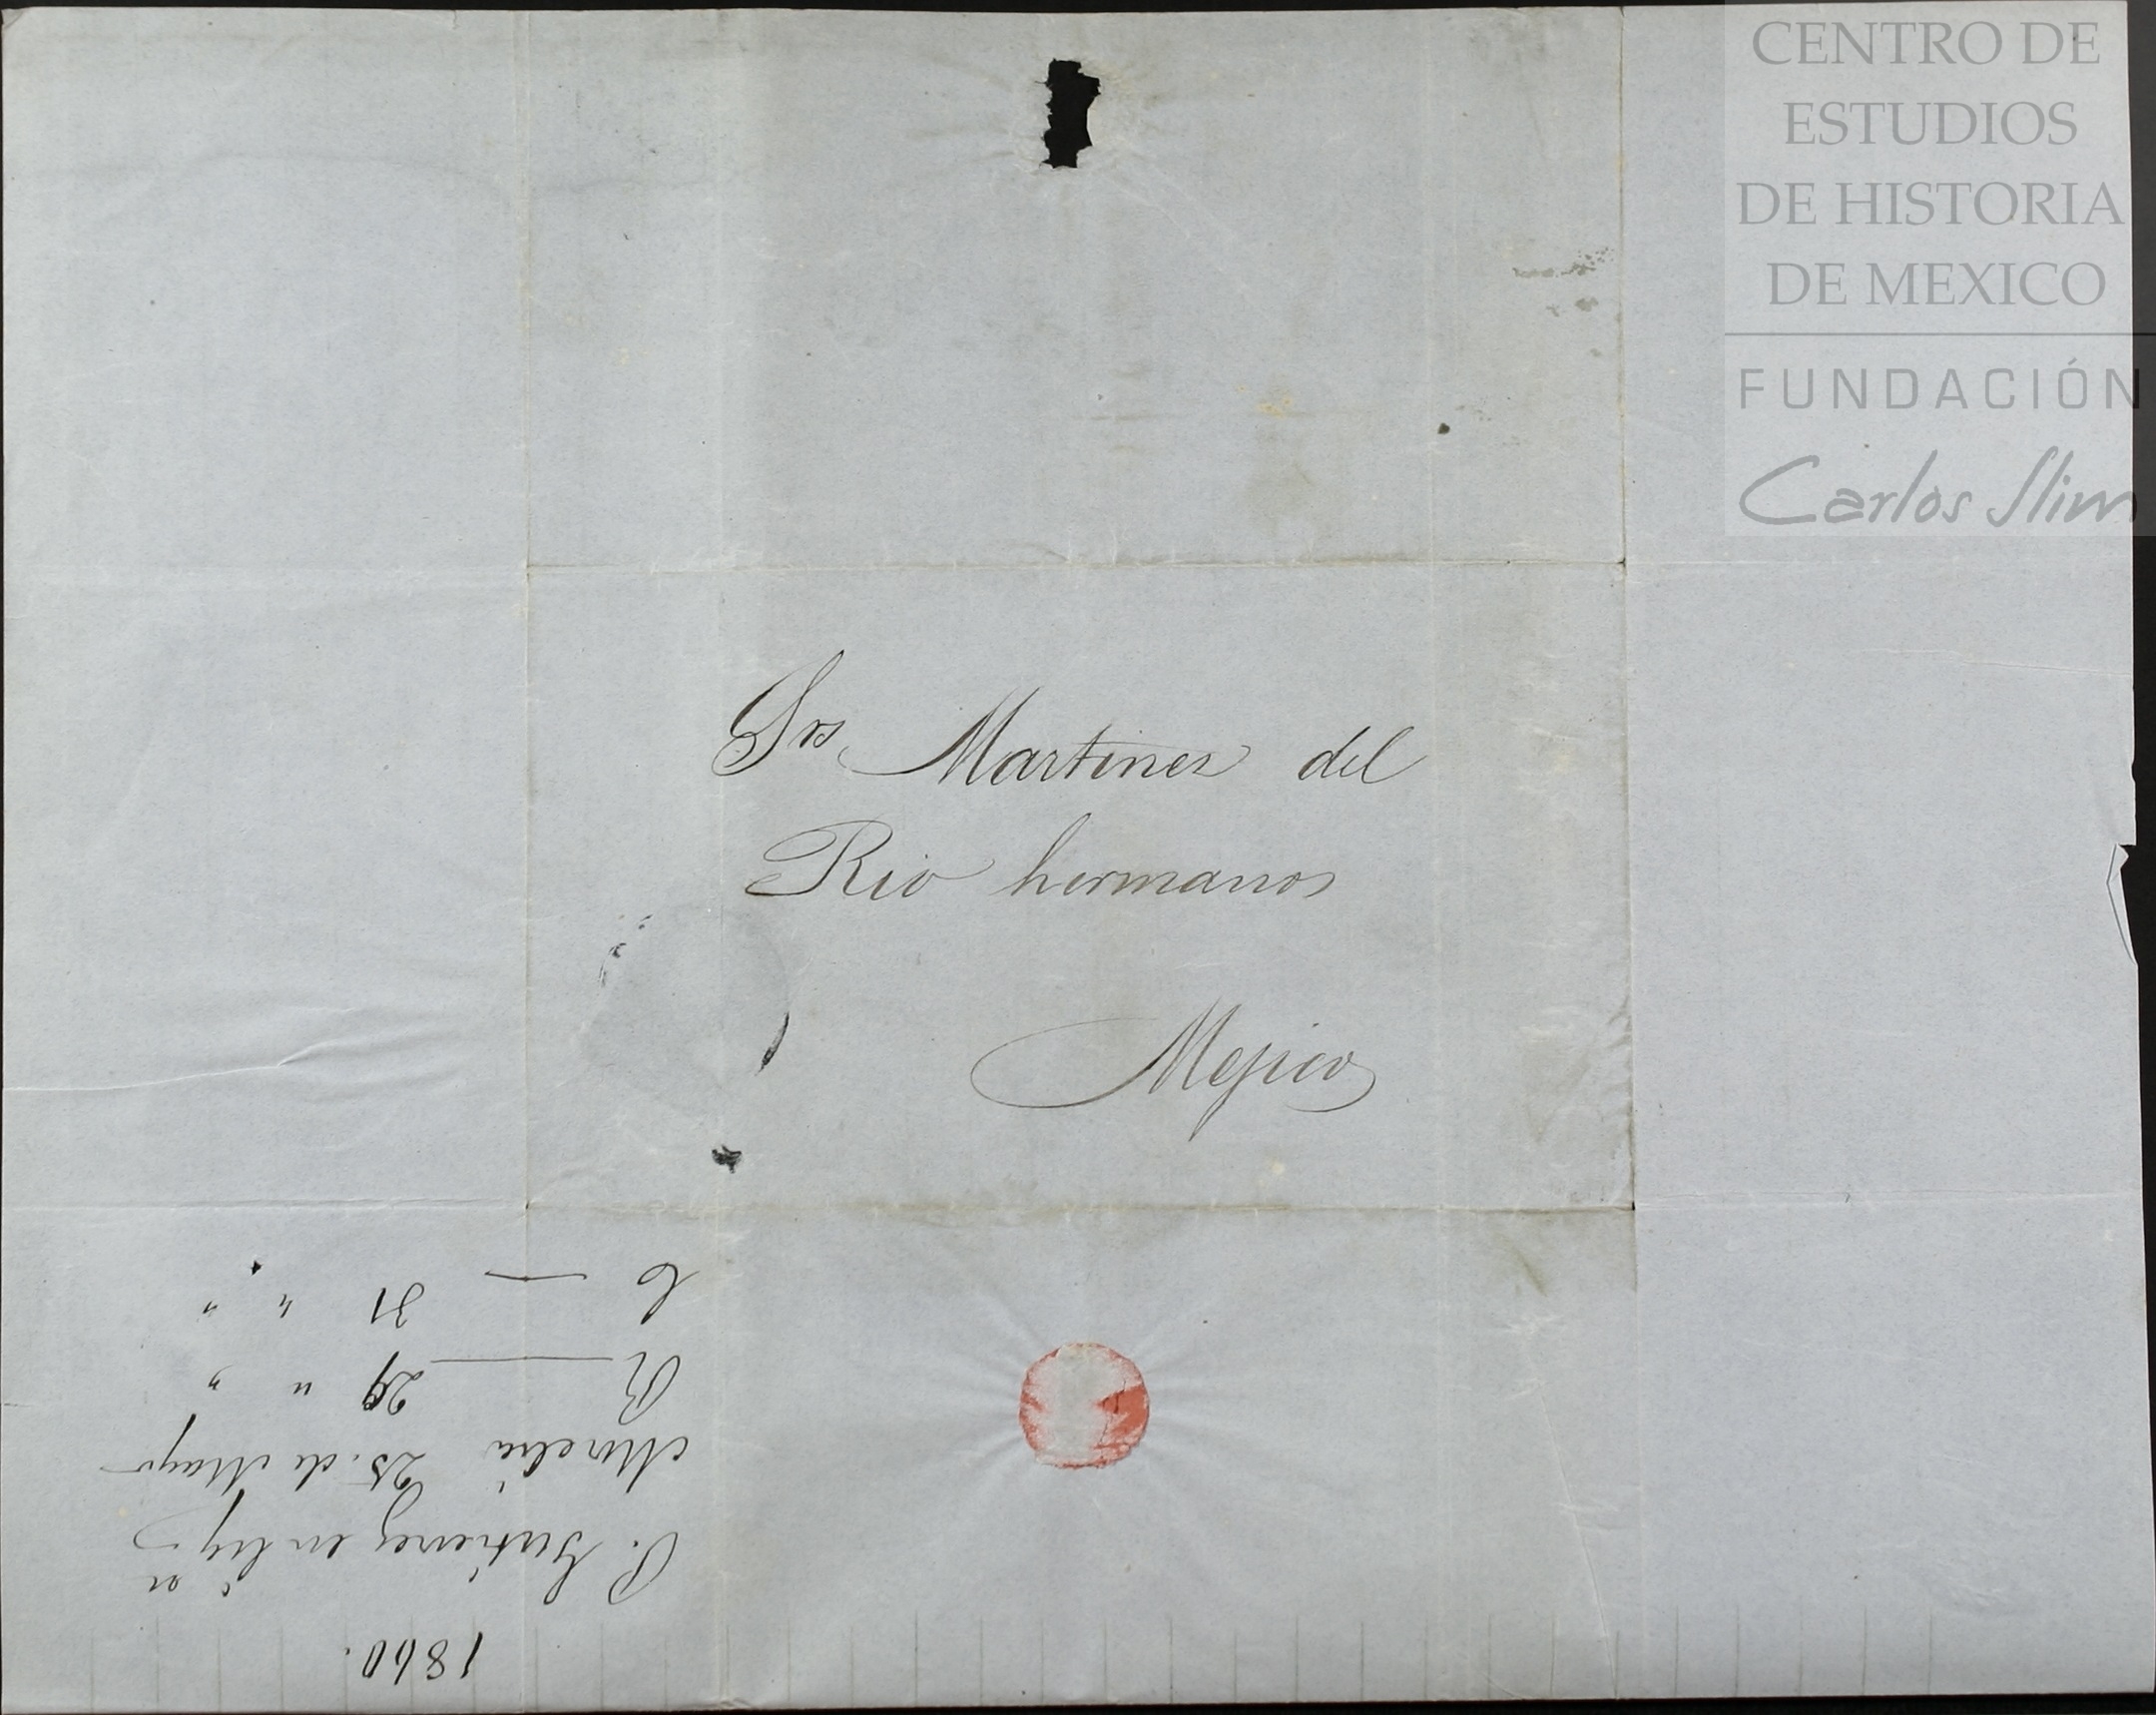 CENTRO DE
ESTUDIOS
DE HISTORIA
DE MEXICO
FUNDACIÓN
Carlos Slim
Srs Martinez del
Rio hermanos
Mejico
1860.
P. Gutierrez en liq.on
Morelia 25. de Mayo
R — 29 " "
C — 31 " "